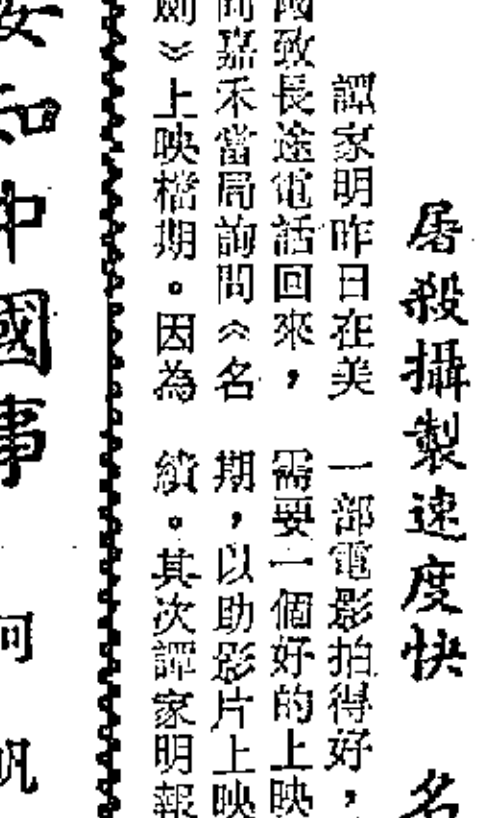 屠殺攝製速度快 名
譚家明昨日在美
國致長途電話回來，
向嘉禾當局詢問《名
劍》上映檔期。因為
一部電影拍得好，
需要一個好的上映
期，以助影片上映
績。其次譚家明報
安知中國事
河 帆